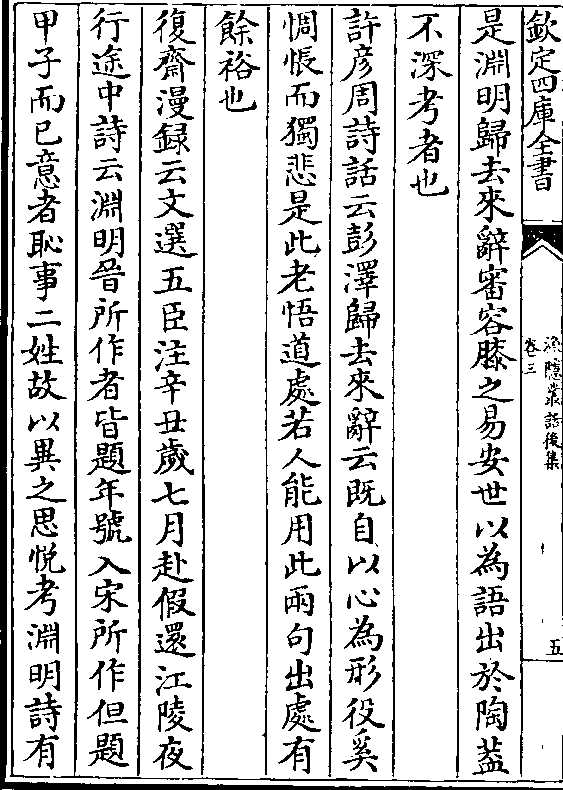 欽定四庫全書
漁隱叢話後集
卷三
五
是淵明歸去來辭審容膝之易安世以為語出於陶葢
不深考者也
許彦周詩話云彭澤歸去來辭云既自以心為形役奚
惆悵而獨悲是此老悟道處若人能用此兩句出處有
餘裕也
復齋漫録云文選五臣注辛丑歲七月赴假還江陵夜
行途中詩云淵明晉所作者皆題年號入宋所作但題
甲子而已意者恥事二姓故以異之思悅考淵明詩有